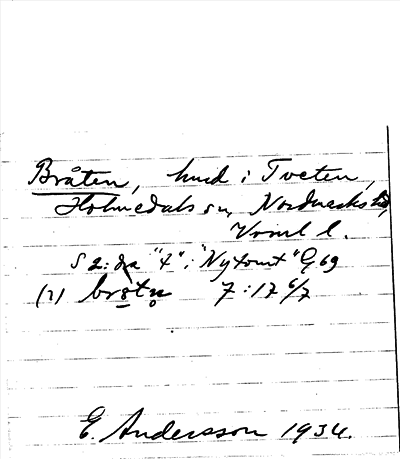 Bråten, hmd i Tveten,
Holmedals sn, Nordmarks hd,
Vrml l.
S 2: "4": "Nytomt" G 69
(2) brötn 7:17 6/7
E. Andersson 1934.